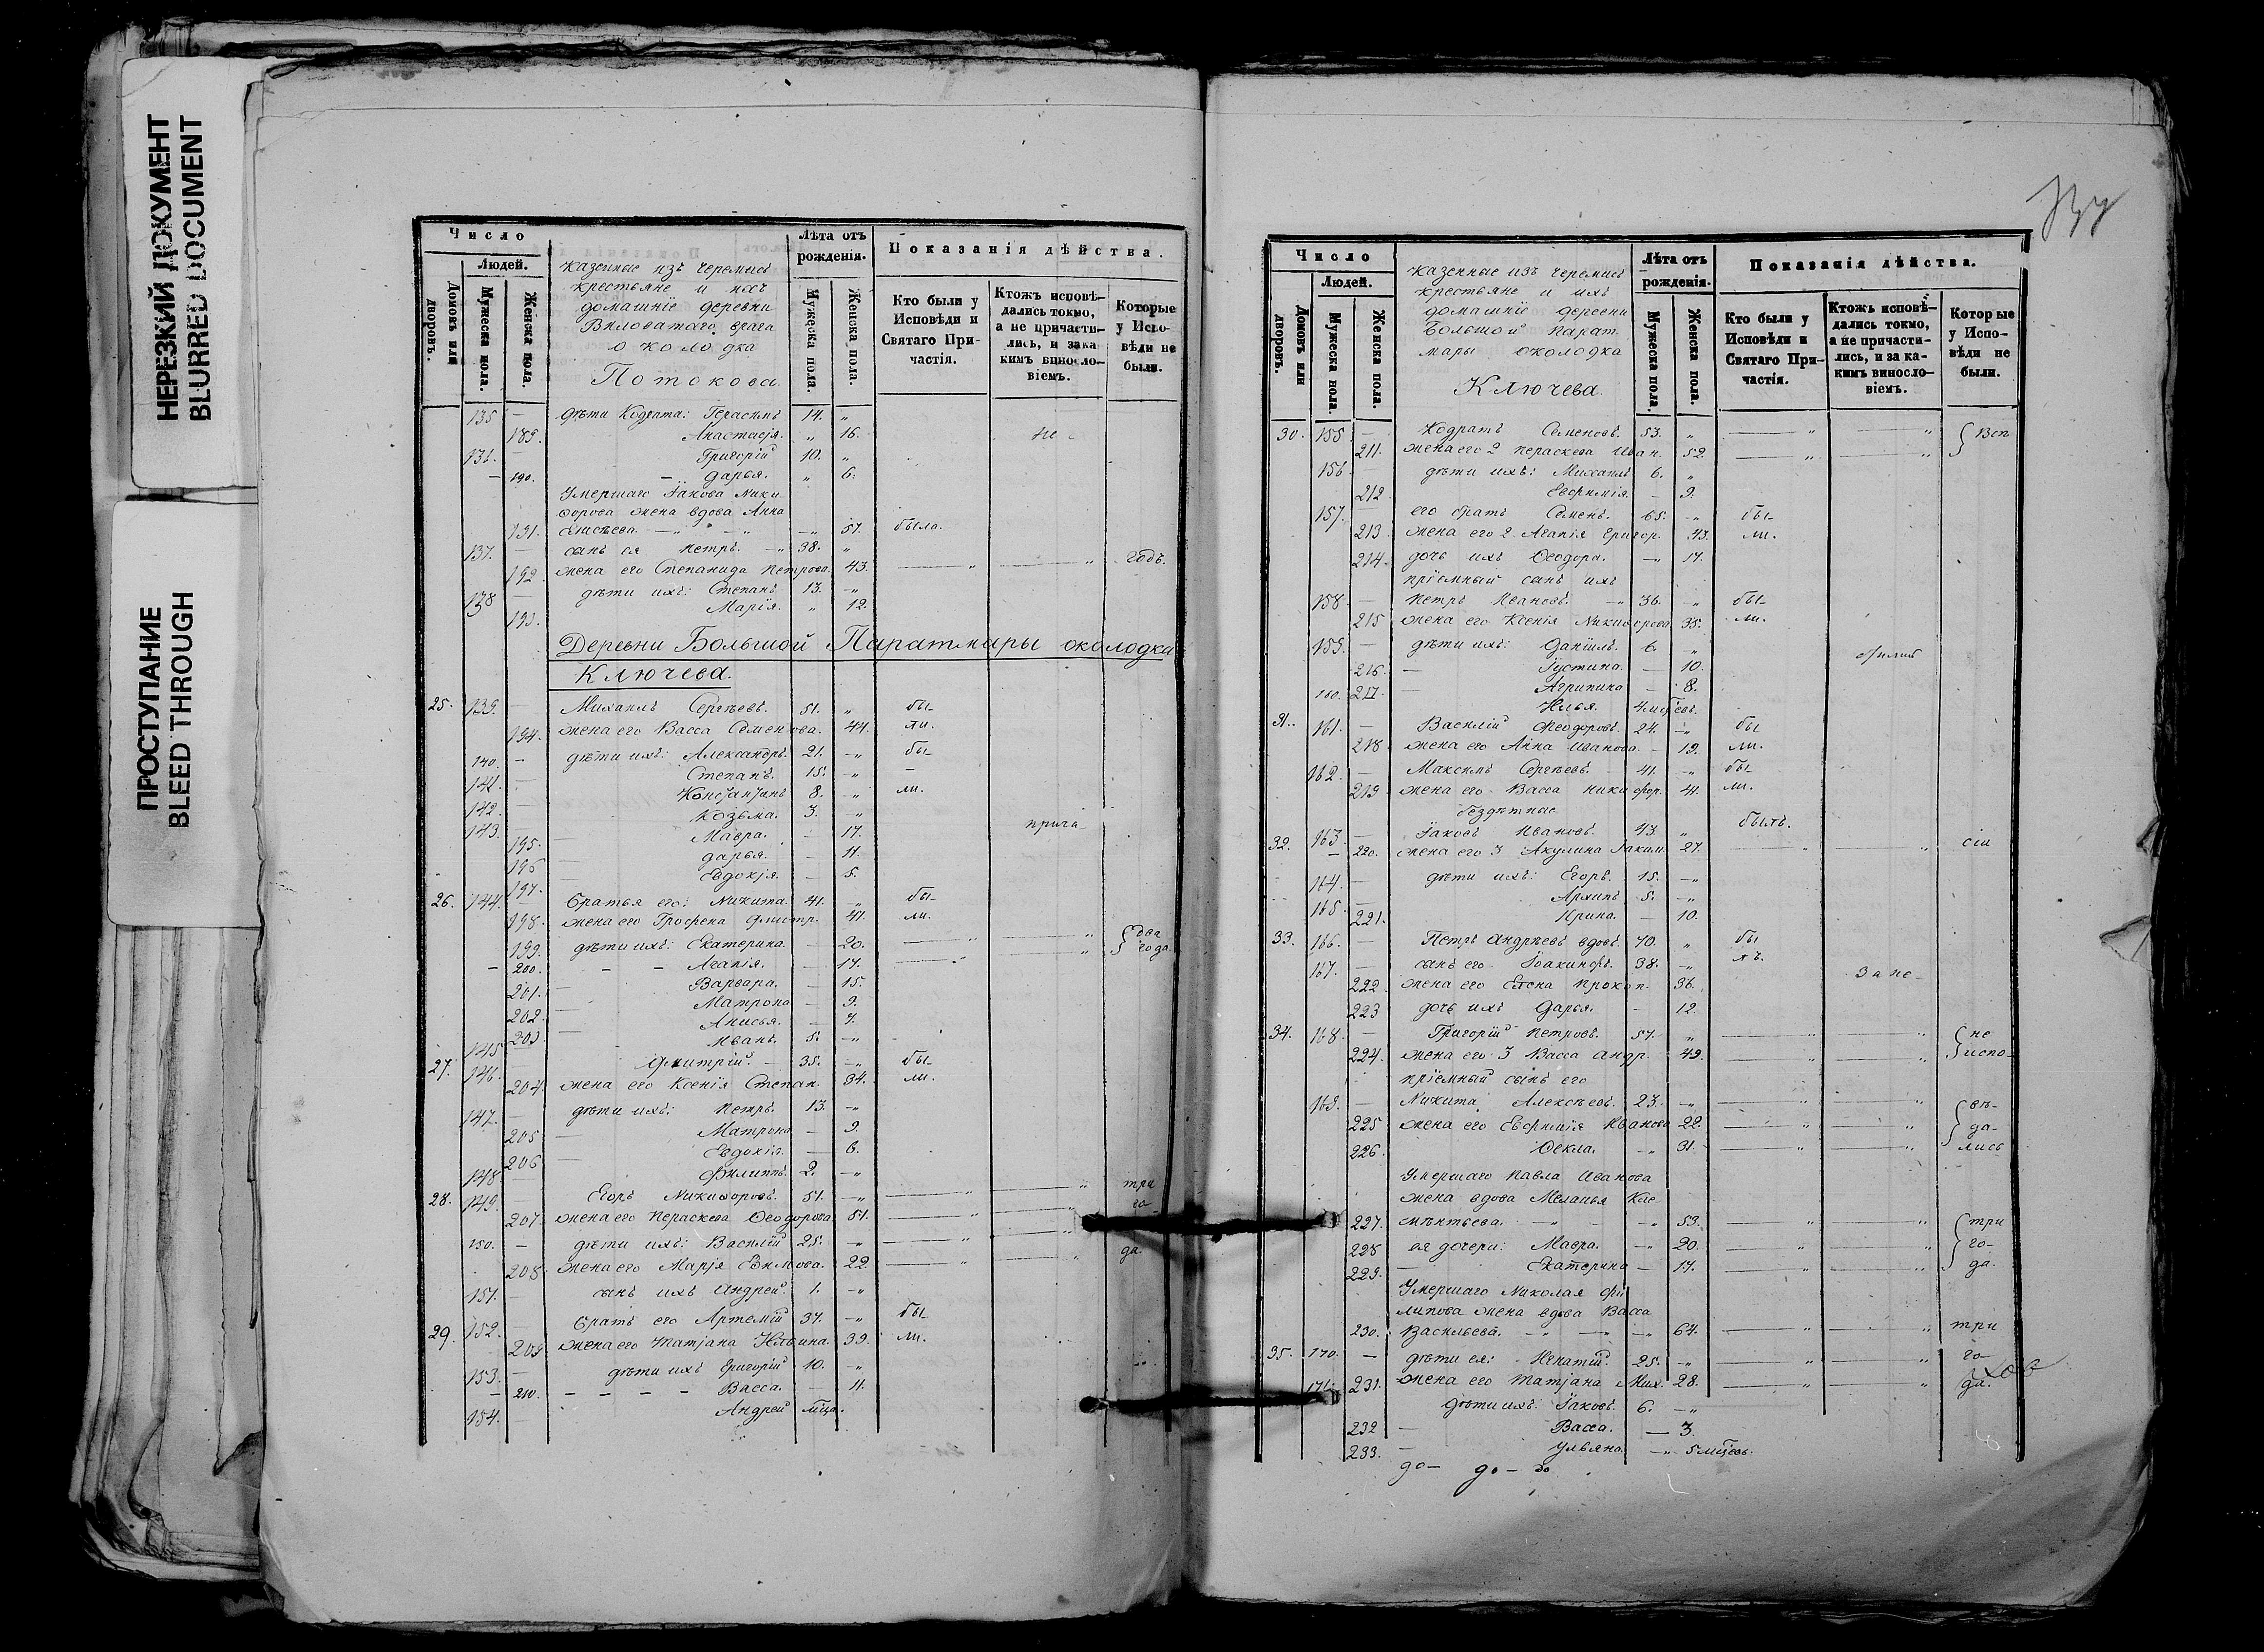 НЕРЕЗКИЙ ДОКУМЕНТ
BLURRED DOCUMENT
ПРОСТУПАНИЕ
BLEED THROUGH
Число
Людей.
Домовъ или дворовъ.
Мужеска пола.
Женска пола.
казенные изъ черемисъ
крестьяне и ихъ
домашніе деревни
Виловатаго врага
околодка
Потокова.
Лѣта отъ рожденія.
Мужеска пола.
Женска пола.
Показанія дѣйства.
Кто были у Исповѣди и Святаго Причастія.
Ктожъ исповѣдались токмо, а не причастились, и за какимъ винословіемъ.
Которые у Исповѣди не были.
135 — дѣти Кодрата: Герасимъ 14. „
189. Анастасія. „ 16. не
136. Григорій 10. „
— 190. — Дарья. „ 6.
Умершаго Іакова Ники-
форова жена вдова Анна
191. Елисѣева. — „ — „ 57. была.
137. — сынъ ея Петръ. — 38. „
192. жена его Степанида Петрова. 43. — „ — „ годъ.
138 — дѣти ихъ: Степанъ 13. „
193. Марія. „ 12.
Деревни Большой Паратмары околодка
Ключева.
25. 139. — Михаилъ Сергѣевъ. 51. „ бы-
194. жена его Васса Семенова. — 44. ли.
140. — дѣти ихъ: Александръ. 21. — „ бы-
141. — Степанъ. 15. — „ —
142. — Константинъ 8. — „ ли.
143. — Козьма. 3. — „
195. — Мавра. — 17. прича
196 — Дарья. — 11.
197. — Евдокія. — 5.
26. 144. — братья его: Никита. 41. — „ бы-
198. жена его Грофена Дмитр. 41. ли.
199. дѣти ихъ: Екатерина. — 20. — „ — „ два
— 200. — — Агапія. — 17. — „ — „ года.
201. — Варвара. — 15.
202. — Матрона — 9.
203 — Анисья. — 7.
145 Иванъ. 5. — „
27. 146. Дмитрій. — 35. — „ бы-
204. жена его Ксенія Степан. 34. ли.
147. — дѣти ихъ: Петръ. 13. — „
205 — Матрона — 9.
206 — Евдокія. — 6.
148 — Филиппъ. 2. — „
28. 149. — Егоръ Никифоровъ. 51. — „ — „ — „ три
207. жена его Пераскева Ѳеодорова 51. — „ — „ го-
150. — дѣти ихъ: Василій 25. — „ — „ — „
208. жена его Марія Ефимова. 22. — „ — „ да.
151. — сынъ ихъ Андрей. 1. — „
29. 152. — братъ его Артемій 37. — „ бы-
209 жена его Татіана Ильина. 39. ли.
153. — дѣти ихъ Григорій 10. — „
— 210. — — — — Васса. — 11.
154. — Андрей мѣца.
Число
Людей.
Домовъ или дворовъ.
Мужеска пола.
Женска пола.
казенные изъ черемисъ
крестьяне и ихъ
домашніе деревни
Большой Парат
мары околодка
Ключева.
Лѣта отъ рожденія.
Мужеска пола.
Женска пола.
Показанія дѣйства.
Кто были у Исповѣди и Святаго Причастія.
Ктожъ исповѣдались токмо, а не причастились, и за какимъ винословіемъ.
Которые у Исповѣди не были.
30. 155. — Кодратъ Семеновъ. 53. „ — „ — „
211. жена его 2 Пераскева Иван. 52. — „ — „
156. дѣти ихъ: Михаилъ 6. „
212. Евфимія. — 9.
157. его братъ Семенъ. 65. — „ бы-
213. жена его 2. Агапія Григор. 43. ли.
214. дочь ихъ Ѳеодора. — „ 17.
пріемный сынъ ихъ
158. — Петръ Ивановъ. — 36. — „ бы-
215 жена его Ксенія Никифорова 35. ли.
159. — дѣти ихъ: Даніилъ. 6. „
216. — Іустина. — 10.
160. 217. — Агрипина — 8.
Илья. 4 мцевъ.
31. 161. — Василій Ѳеодоровъ. 24. — „ бы
218. жена его Анна Иванова — 19. ли.
162. — Максимъ Сергѣевъ. — 41. — „ бы-
219. жена его Васса Никифор. 41. ли.
бездѣтные
32. 163. — Іаковъ Ивановъ. 43. „ былъ.
— 220. жена его 3 Акулина Іаким. 27. — „ — „ сіи
164. — дѣти ихъ: Егоръ. 15. — „
165. — Архипъ 5. — „
221. Ирина. — 10.
33. 166. — Петръ Андрѣевъ вдовъ. 70. „ бы
167. — сынъ его Іоакинфъ. 38. — „ лъ.
222. жена его Елена Прокоп. 36. За не-
223 дочь ихъ Дарья. — 12.
34. 168. — Григорій Петровъ. 57. „ — „ — „ не
224. жена его 3 Васса Андр. 49. — „ — „ испо-
пріемный сынъ его
169. — Никита Алексѣевъ. 23. — „ — „ — „ вѣ-
225 жена его Евфимія Иванова 22. — „ — „ да-
226. Ѳекла. — „ 31. — „ — „ лись
Умершаго Павла Иванова
жена вдова Меланья Кле
227. мѣнтьева. — „ — „ 53. — „ — „ три
228 ея дочери: Мавра. — „ 20. — „ — „ го-
229. — Екатерина — 17. — „ — „ да.
Умершаго Николая Фи
липова жена вдова Васса
230. Васильева. — „ — „ — „ 64. — „ — „ три
35. 170. — дѣти ея: Игнатій. 25. — „ — „ — „ го-
171. 231. жена его Татіана Мих. 28. — „ — „ да.
дѣти ихъ: Іаковъ. 6. — „
232 — Васса. — 3.
233. — Ульяна. — „ 5 мцевъ.